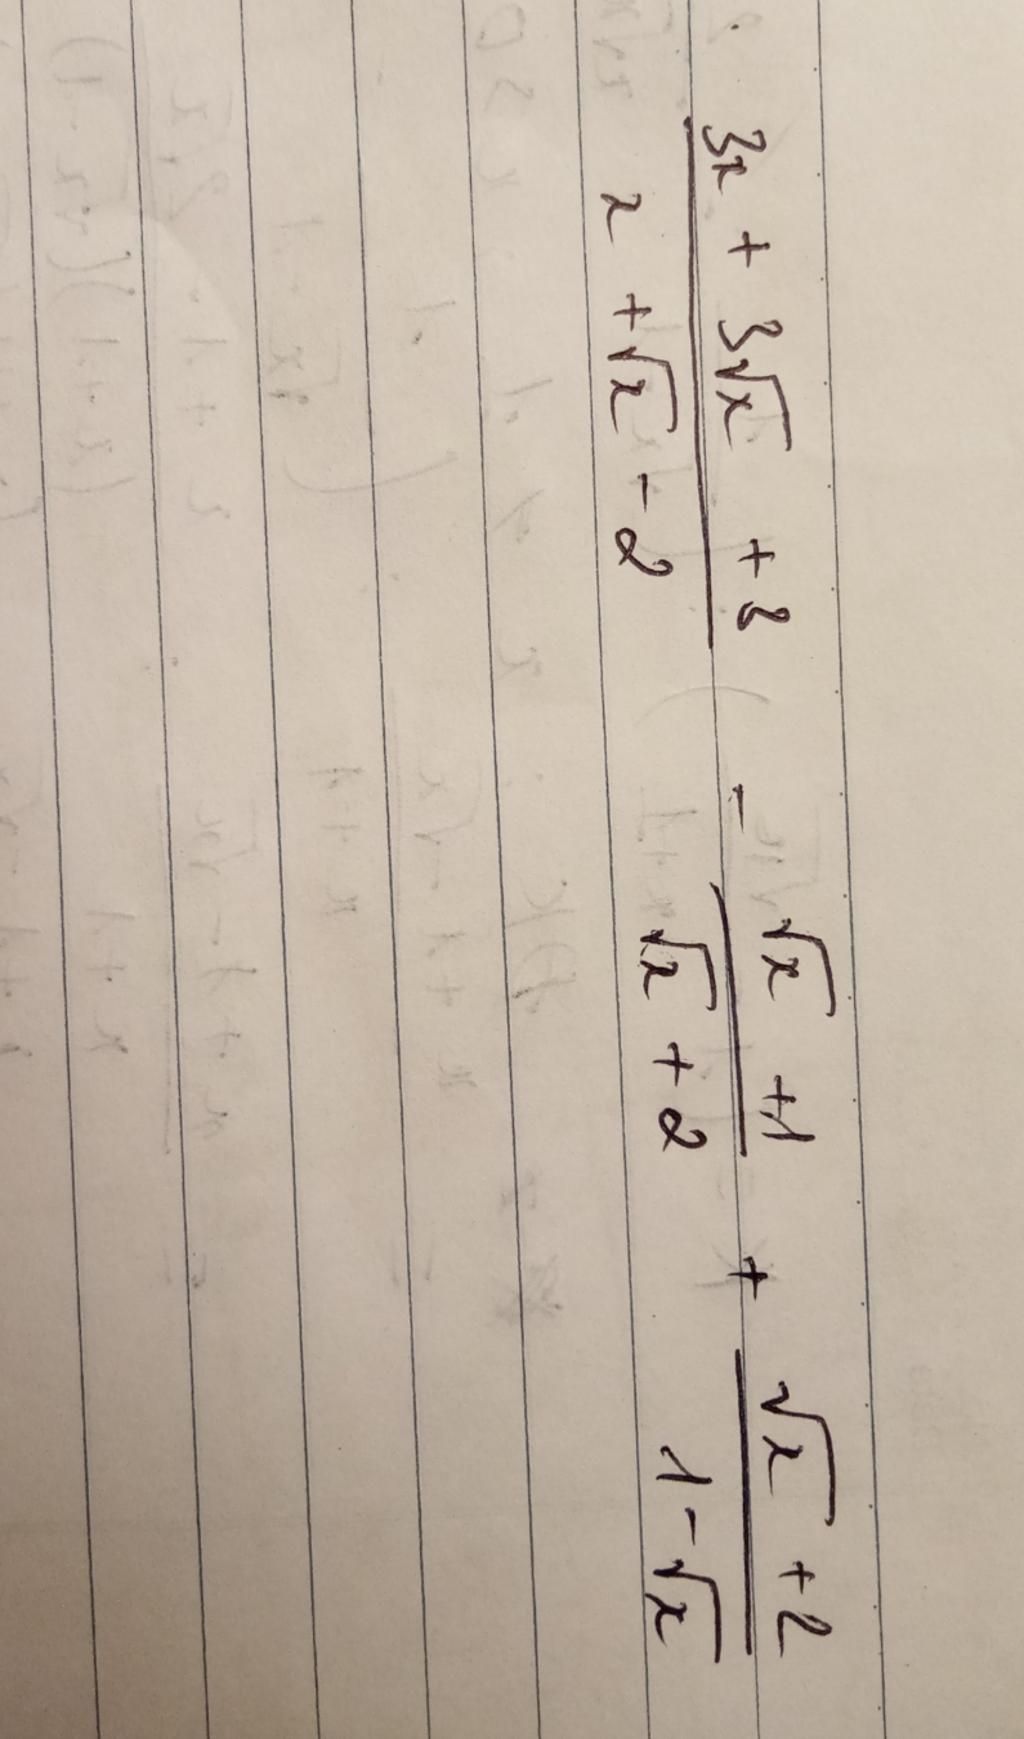 3x + 3√x + 3 / x + √x - 2 - √x + 1 / √x + 2 + √x + 2 / 1 - √x